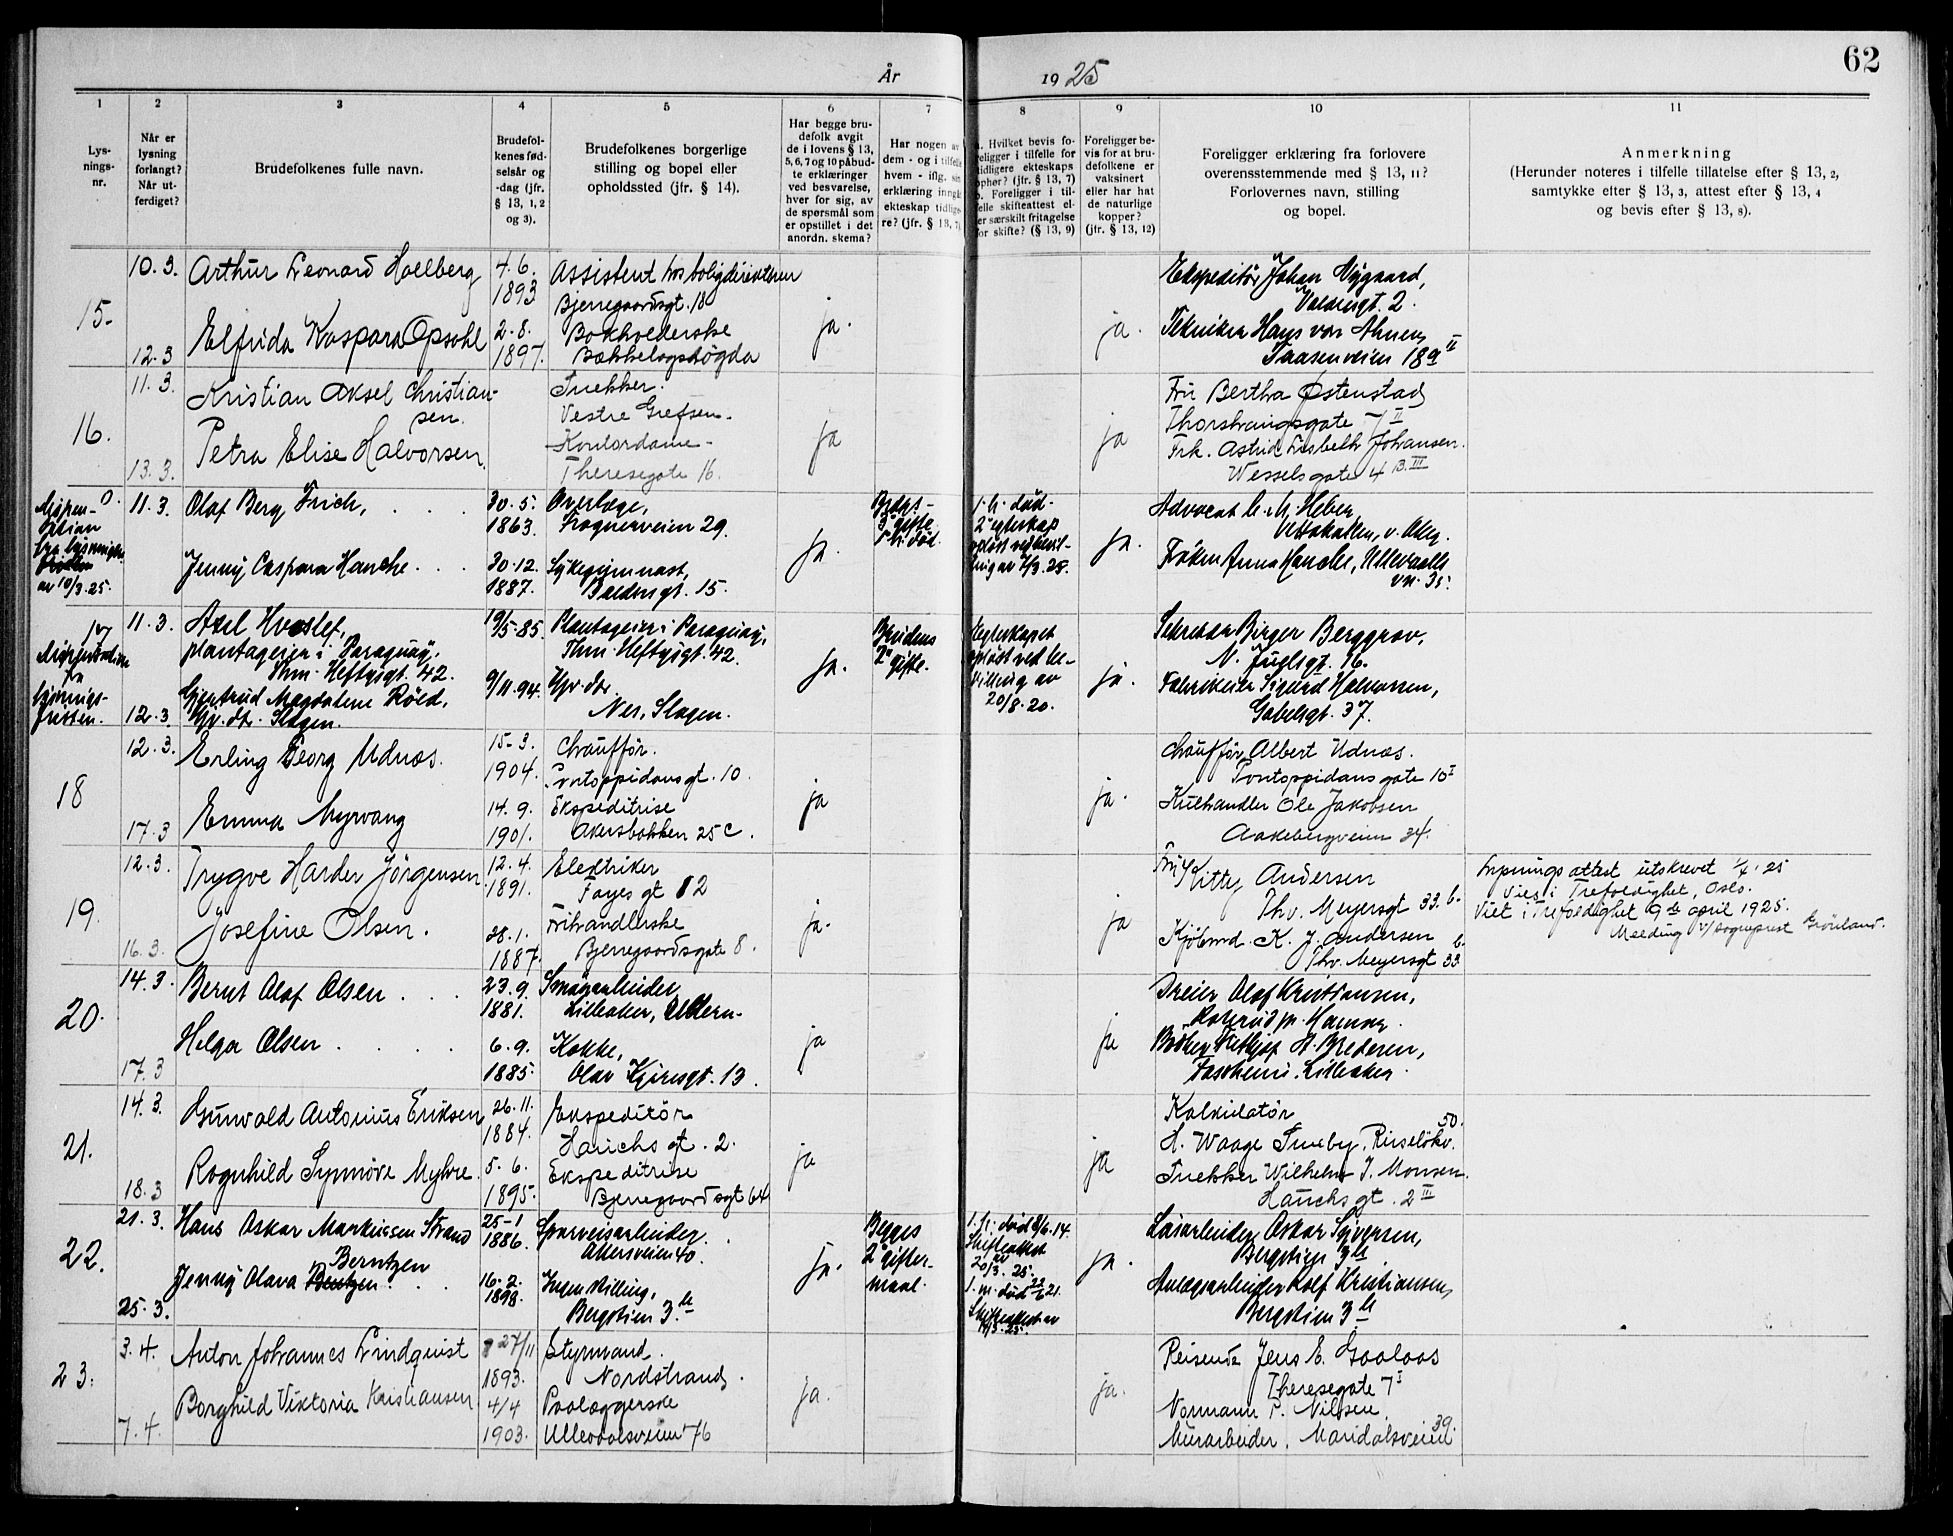 62
År 1925
1 2 3 4 5 6 7 8 9 10 11
Lys-
nings-
nr.
Når er
lysning
forlangt?
Når ut-
ferdiget?
Brudefolkenes fulle navn.
Brudefol-
kenes fød-
selsår og
-dag (jfr.
§ 13, 1, 2
og 3).
Brudefolkenes borgerlige
stilling og bopel eller
opholdssted (jfr. § 14).
Har begge bru-
defolk avgit
de i lovens § 13,
5, 6, 7 og 10 påbud-
te erklæringer
ved besvarelse,
hver for sig, av
de spørsmål som
er opstillet i det
anordn. skema?
Har nogen av
dem - og i tilfelle
hvem - iflg. sin
erklæring inngåt
ekteskap tidlige-
re? (jfr. § 13, 7)
a. Hvilket bevis fo-
religger i tilfelle for
tidligere ekteskaps
ophør? (jfr. § 13, 7)
b. Foreligger i til-
felle skifteattest el-
ler særskilt fritagelse
for skifte? (§ 13, 9)
Foreligger be-
vis for at bru-
defolkene er
vaksinert
eller har hat
de naturlige
kopper?
(jfr. § 13, 12)
Foreligger erklæring fra forlovere
overensstemmende med § 13, 11?
Forlovernes navn, stilling
og bopel.
Anmerkning
(Herunder noteres i tilfelle tillatelse efter § 13, 2,
samtykke efter § 13, 3, attest efter § 13, 4
og bevis efter § 13, 8).
15.
10.3.
12.3
Arthur Leonard Hallberg
Elfrida Kaspara Opsahl
4.6.
1893
2.8.
1897.
Assistent hos boligdirektøren
Bjerregaardsgt. 18
Bokholderske
Bækkelagshøgda
ja.
ja.
Ekspeditør Johan Nygaard,
Valdrisgt. 2.
Tekniker Hans von Ahnen,
Taasenveien 18a II
16.
11.3.
13.3.
Kristian Aksel Christian-
sen.
Petra Elise Halvorsen.
Snekker.
Vestre Grefsen.
Kontordame -
Theresegate 16.
ja
ja
Fru Bertha Østenstad
gate 7 II
Frk. Astrid Lisbeth Johansen.
Wesselsgate 4 B. III
Dispen-
sation
fra lysningen
av 10/3.25.
11.3.
Olaf Berg Frich,
Jenny Caspara Hanche
30.5.
1863.
30.12.
1887.
Overlæge,
Frognerveien 29.
Sykegymnast,
Baldersgt. 15.
ja.
Brudg-
3' gifte
1. h. død.
1. h. død.
2' egteskap
opløst ved bevil-
ling av 7/3.25.
ja.
Advocat C. M. Heber
Vettakollen, v. Aker.
Frøken Anna Hanche, Ullevaals
vn. 31.
17
Dispensation
fra
lysnings-
fristen.
11.3.
12.3.
Axel Hvoslef,
plantageier i Paraguay.
Thm. Heftyesgt. 42.
Gjertrud Magdalene Røed,
Hpv. dtr. Slagen.
19/5-85.
9/11.94.
Plantageier i Paraguay,
Thm. Heftyesgt. 42.
Hpv. dtr.
Nes, Slagen.
ja.
Brudens
2' gifte.
Egteskapet
opløst ved be-
villing av
20/8.20.
ja.
Sekretær Birger Berggrav,
N. Juelsgt. 16.
Fabrikeier Sigurd Halvorsen,
Gabelsgt. 37.
18
12.3.
17.3
Erling Georg Udnæs.
Emma Myrvang
15-3.
1904.
14.9.
1901.
Chauffør.
Pontoppidansgt. 10.
Ekspeditrise
Akersbakken 25 C.
ja
ja.
Chauffør Albert Udnæs.
Pontoppidans gate 10 I
Kulhandler Ole Jakobsen
Aakebergveien 34.
19
12.3.
16.3.
Trygve Harder Jörgensen
Josefine Olsen.
12.4.
1891.
28.1.
1887.
Elektriker
Fayes gt 12
Frihandlerske
Bjerregaardsgate 8.
ja.
ja
Fru Kitty Andersen
Thv. Meyersgt 33.b.
Kjøbmd. K. J. Andersen
Thv. Meyersgt 33 b.
Lysningsattest utskrevet 1/4.25
Vies i Trefoldighet, Oslo.
Viet i Trefoldighet 9de april 1925.
Melding v/ sogneprest Grönland.
20.
14.3.
17.3
Bernt Olaf Olsen
Helga Olsen
23.9.
1881.
6.9.
1885.
Smågarbeider
Lilleaker, Ullern.
Kokke,
Olav Kyrresgt. 13.
ja
ja
Dreier Olaf Kristiansen,
Frithjof A. Bredesen,
Lilleaker.
21.
14.3.
18.3
Gunvald Antonius Eriksen
Ragnhild Synnöve Myhre.
26.11.
1884.
5.6.
1895.
Ekspeditör
Hauchs gt. 2.
Ekspeditrise
Bjerregaardsgt 64
ja
ja
Kalkulatør
H. Waage Tueby, Pinseløkv. 50.
Snekker Wilhelm J. Monsen.
Hauchs gt. 2 III
22.
21.3.
25.3.
Hans Oskar Markussen Strand
Berntzen
Jenny Olava Bentzen.
25-1
1886.
16.2.
1898.
Sporveisarbeider.
Akersveien 40.
Ingen stilling,
Bergstien 3 b
ja.
Begges
2' gifter-
maal.
1. h. død 8/6.14.
Skifteattest
av
20/3.25.
1. m. død 22/6 21.
Skifteattest av
19/3.25.
ja.
Lusarbeider Oskar Syversen,
Bergstien 3 b
Anlægsarbeider Rolf Kristiansen,
Bergstien 3 b
23.
3.4.
7.4.
Anton Johannes Lindquist
Borghild Viktoria Kristiansen
27/11
1893.
4/4
1903.
Styrmand.
Nordstrand.
Paalæggerske
Ullevolsveien 76
ja.
ja.
Reisende Jens E. Gaalaas
Theresegate 7 I
Normann P. Nilsen,
Murarbeider. Maridalsveien 39.